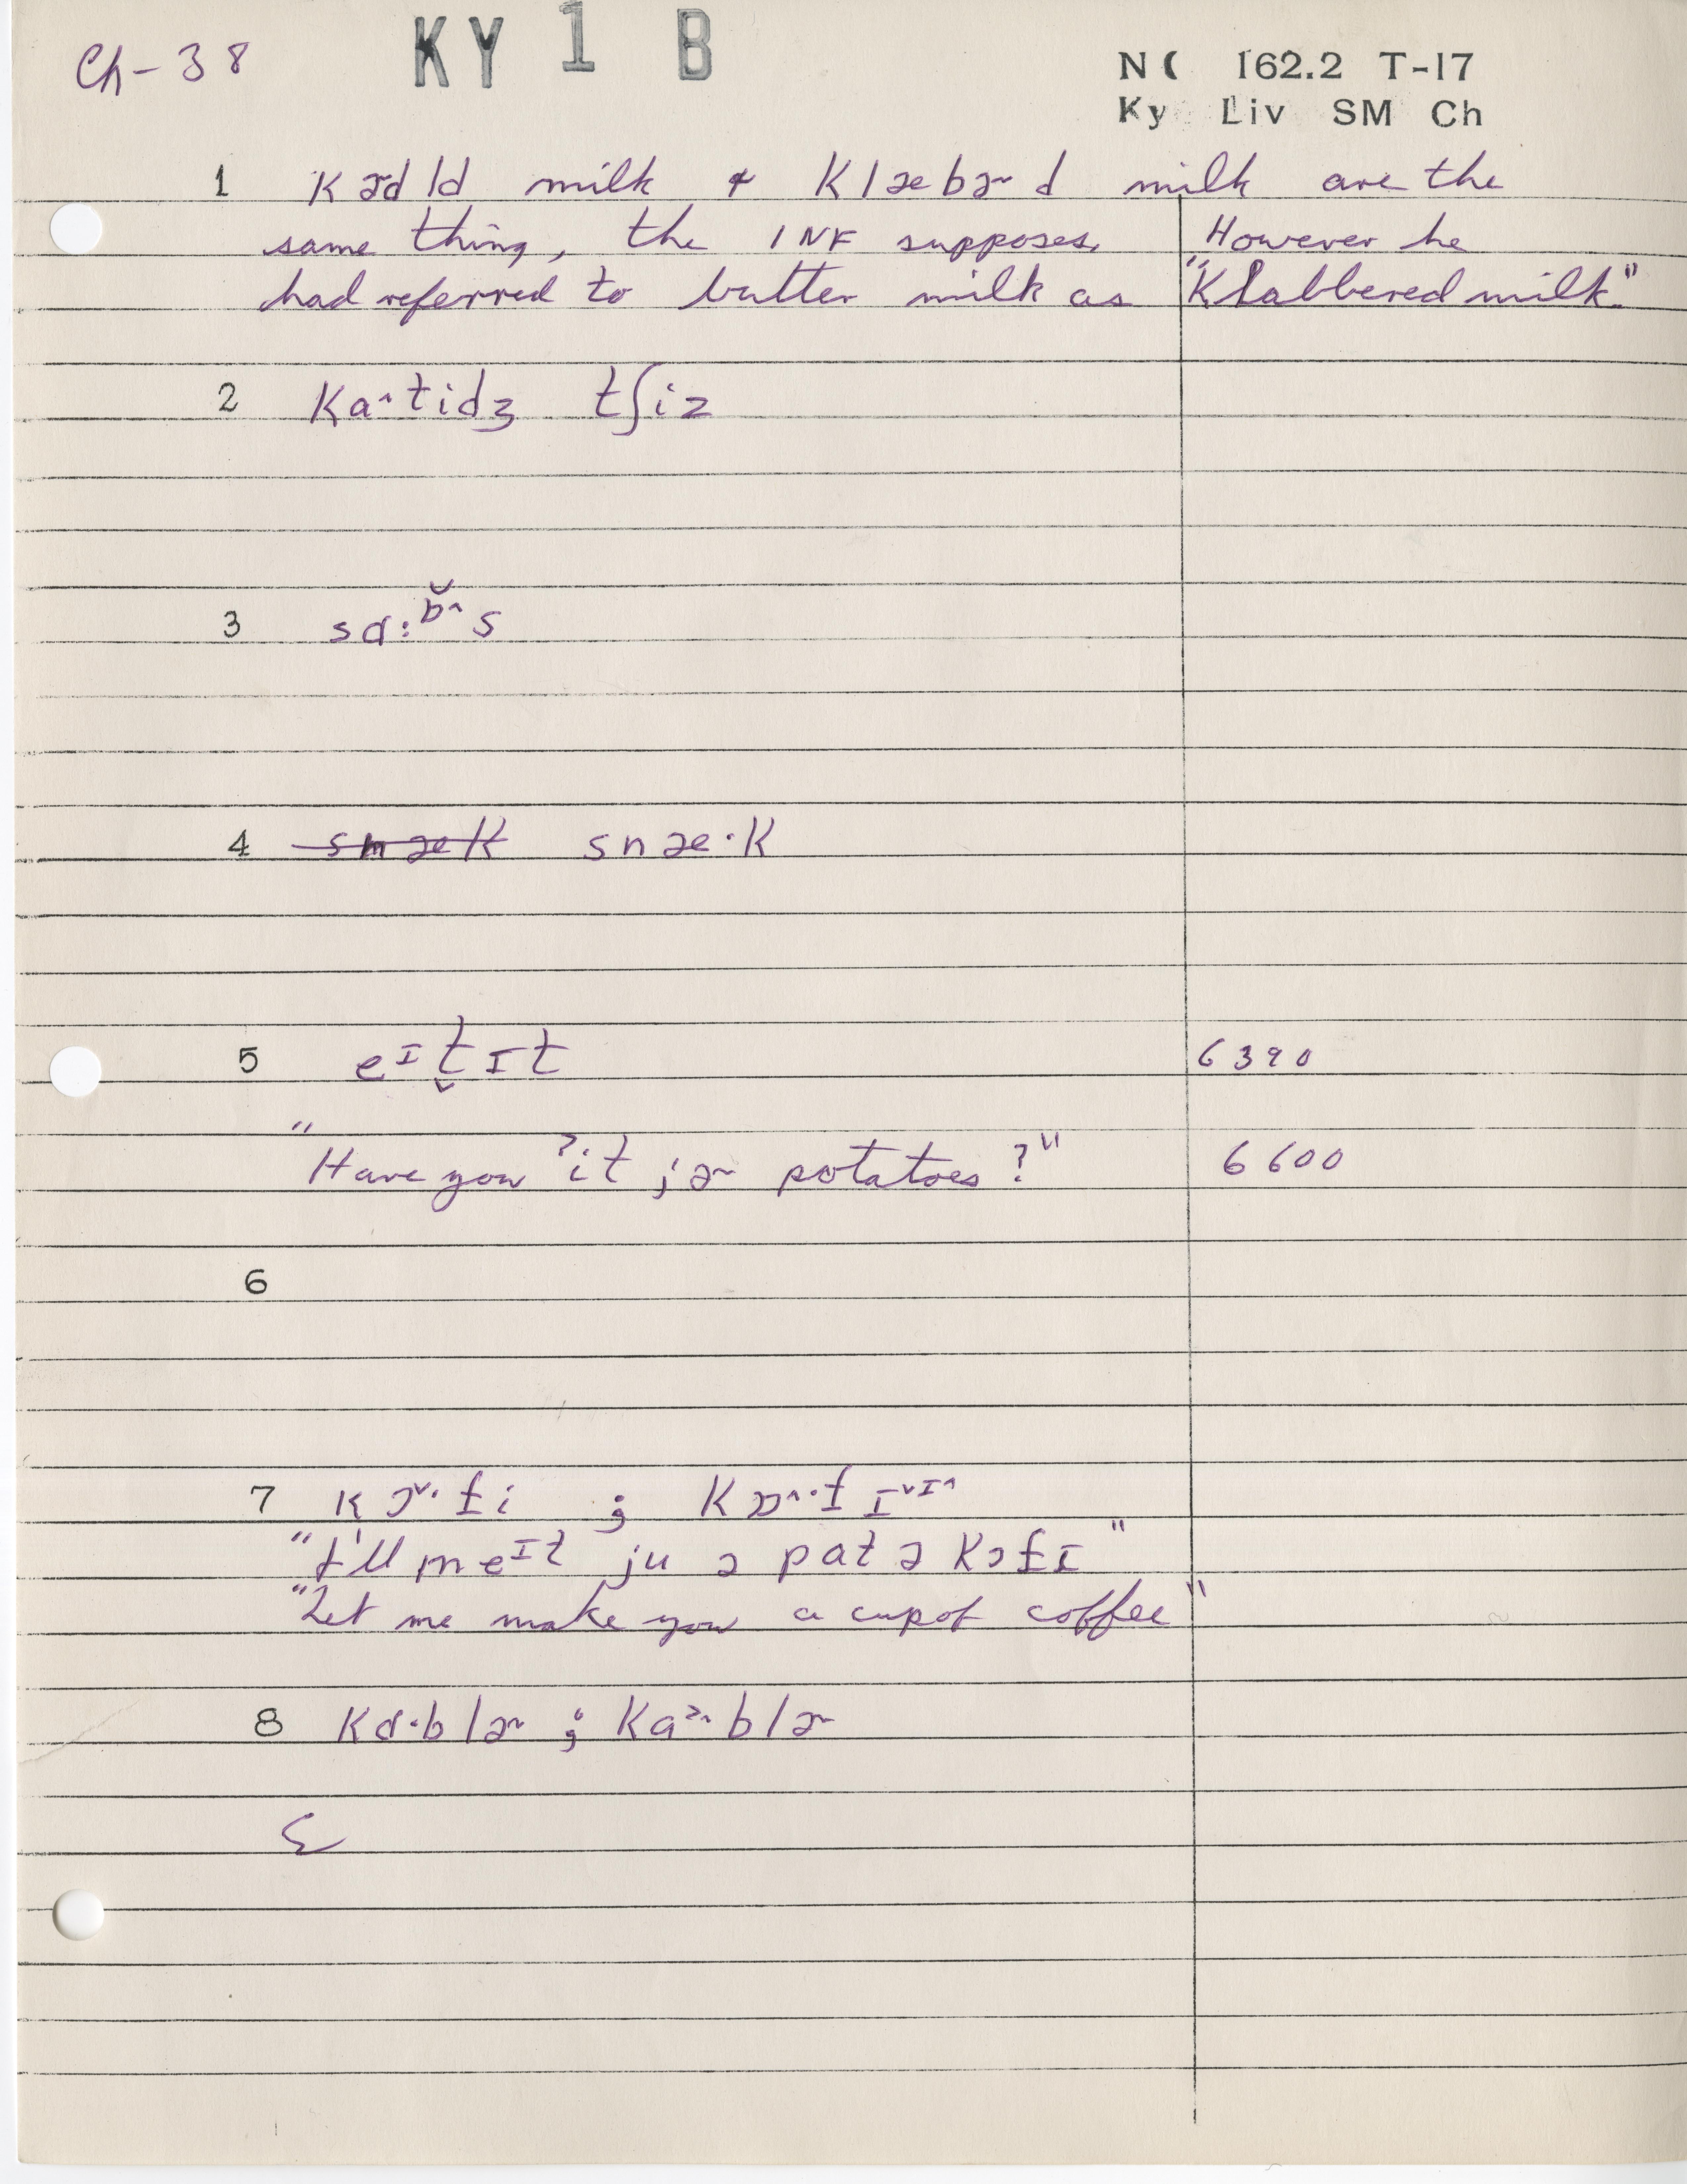 Ch-38 KY 1 B
N( 162.2 T-17
Ky Liv SM Ch
1 Kɚdld milk & Klæbɚd milk are the
same thing, the INF supposes. However he
had referred to butter milk as "Klabbered milk."
2 Kaˑtidʒ tʃiz
3 s s
4 ~~snæK~~ snæ·K
5 eᶦt̬ɪt 6390
"Have you ˀit jɚ potatoes?" 6600
6
7 Kɔˇ·fi ; Kɒ^·fɪˇᶦ^
"I'll meᶦt ju ə pat ə Kɔfɪ"
"Let me make you a cup of coffee"
8 Kɑ·blɚ ; blɚ